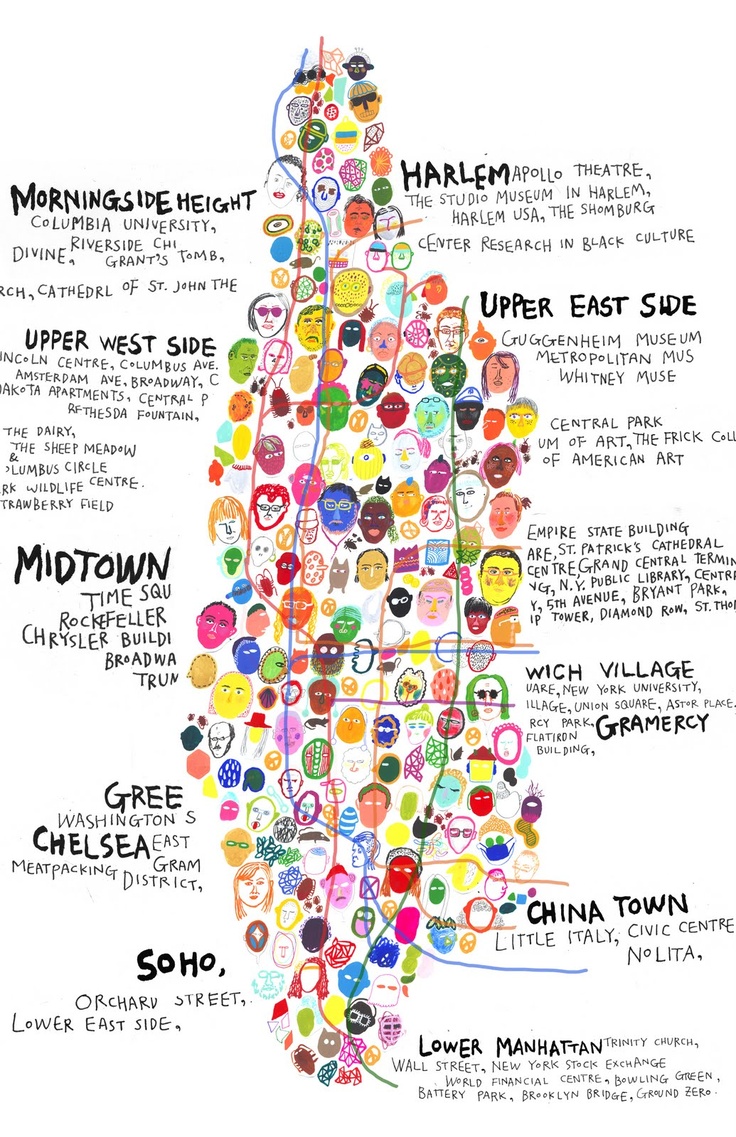 MORNINGSIDE HEIGHT
COLUMBIA UNIVERSITY,
RIVERSIDE CHI
DIVINE, GRANT'S TOMB,
RCH, CATHEDRL OF ST. JOHN THE
HARLEM APOLLO THEATRE,
THE STUDIO MUSEUM IN HARLEM,
HARLEM USA, THE SHOMBURG
CENTER RESEARCH IN BLACK CULTURE
UPPER WEST SIDE
INCOLN CENTRE, COLUMBUS AVE.
AMSTERDAM AVE, BROADWAY, C
DAKOTA APARTMENTS, CENTRAL P
BETHESDA FOUNTAIN,
THE DAIRY,
THE SHEEP MEADOW
&
OLUMBUS CIRCLE
RK WILDLIFE CENTRE.
TRAWBERRY FIELD
UPPER EAST SIDE
GUGGENHEIM MUSEUM
METROPOLITAN MUS
WHITNEY MUSE
CENTRAL PARK
UM OF ART, THE FRICK COLL
OF AMERICAN ART
MIDTOWN
TIME SQU
ROCKEFELLER
CHRYSLER BUILDI
BROADWA
TRUN
EMPIRE STATE BUILDING
ARE, ST. PATRICK'S CATHEDRAL
CENTRE GRAND CENTRAL TERMIN
NG, N.Y. PUBLIC LIBRARY, CENTRA
Y, 5TH AVENUE, BRYANT PARK,
IP TOWER, DIAMOND ROW, ST. THO
WICH VILLAGE
UARE, NEW YORK UNIVERSITY,
ILLAGE, UNION SQUARE, ASTOR PLACE.
RCY PARK, GRAMERCY
FLATIRON
BUILDING,
GREE
WASHINGTON S
CHELSEA EAST
MEATPACKING GRAM
DISTRICT,
CHINA TOWN
LITTLE ITALY, CIVIC CENTRE
NOLITA,
SOHO,
ORCHARD STREET,
LOWER EAST SIDE,
LOWER MANHATTAN TRINITY CHURCH,
WALL STREET, NEW YORK STOCK EXCHANGE
WORLD FINANCIAL CENTRE, BOWLING GREEN,
BATTERY PARK, BROOKLYN BRIDGE, GROUND ZERO.